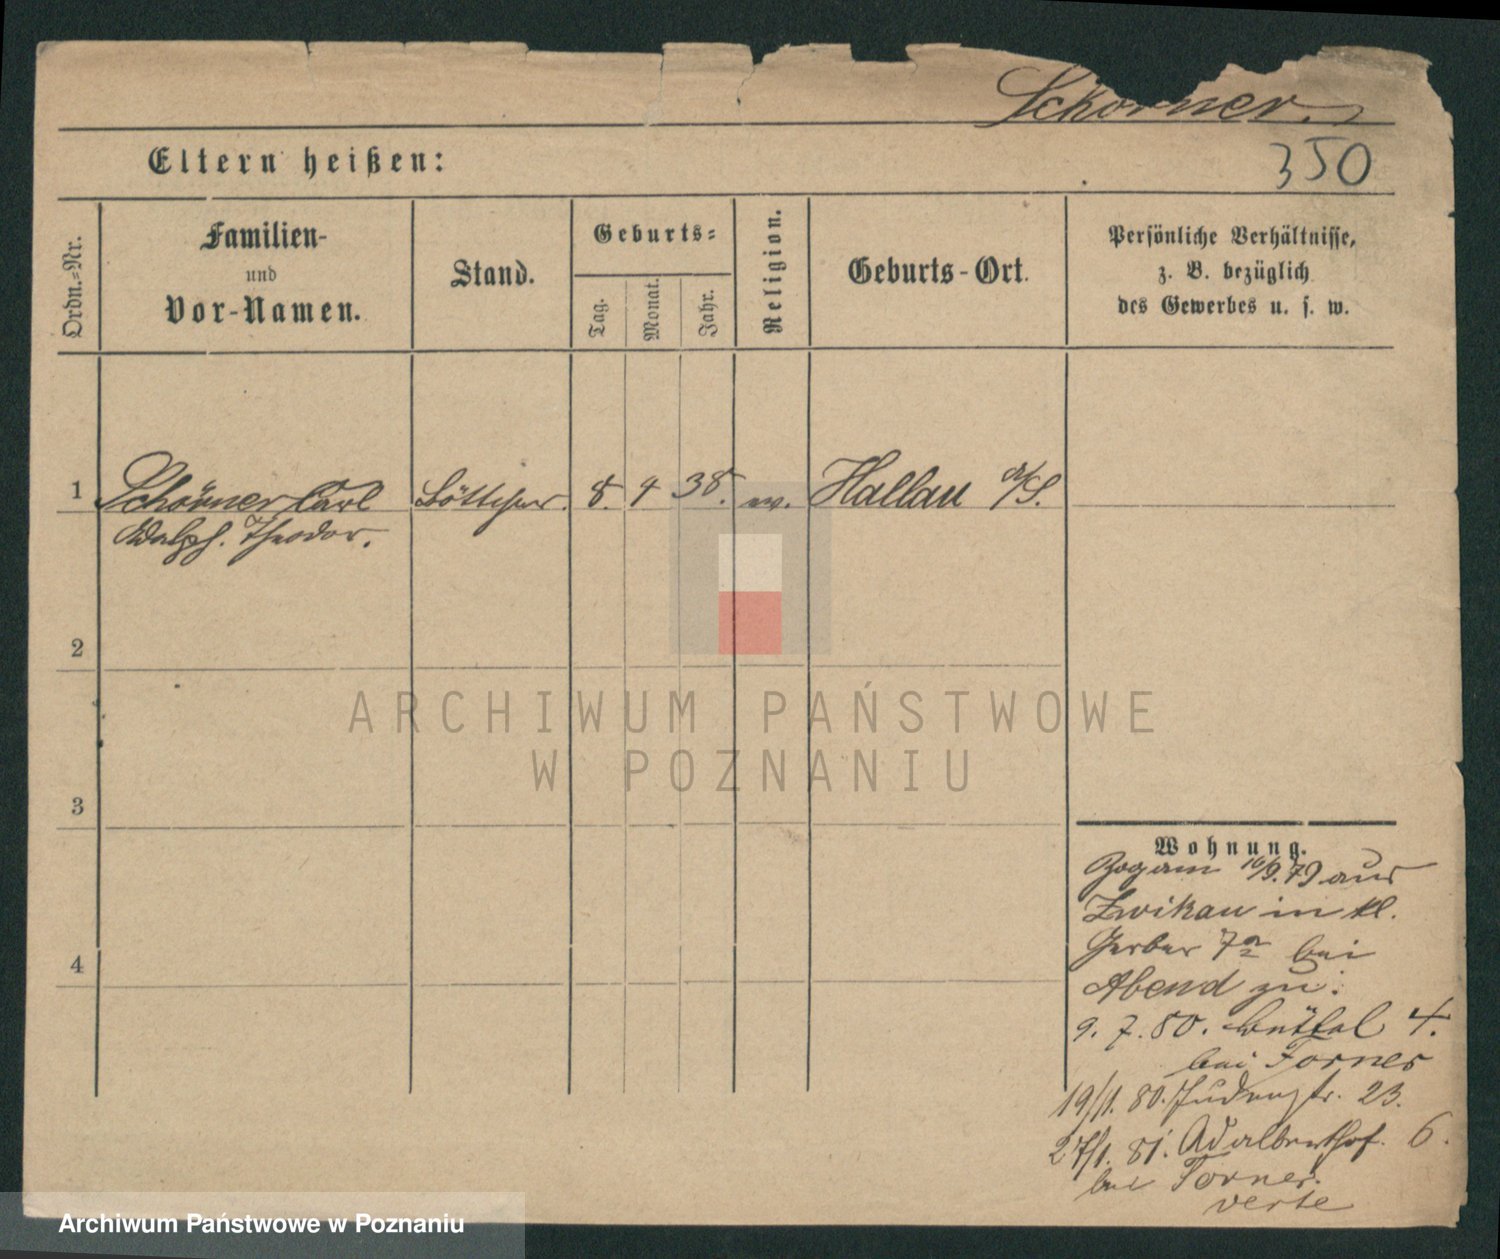 Schörner.
350
Eltern heißen:
Ordn.-Nr.
Familien-
und
Vor-Namen.
Stand.
Geburts-
Tag.
Monat.
Jahr.
Religion.
Geburts-Ort.
Persönliche Verhältnisse,
z. B. bezüglich
des Gewerbes u. s. w.
1 Schörner Carl Böttcher. 8. 4 38. ev. Hallau a/S.
Adolph. Theodor.
2
3
4
Wohnung.
Zog am 16/9. 79 aus
Zwikau in kl.
Gerber 7a bei
Abend zu.
9. 7. 80. Büttel 4.
bei Forner
19/1. 80. Judenstr. 23.
27/1. 81. Adalberthof. 6.
bei Forner.
verte
ARCHIWUM PAŃSTWOWE
W POZNANIU
Archiwum Państwowe w Poznaniu